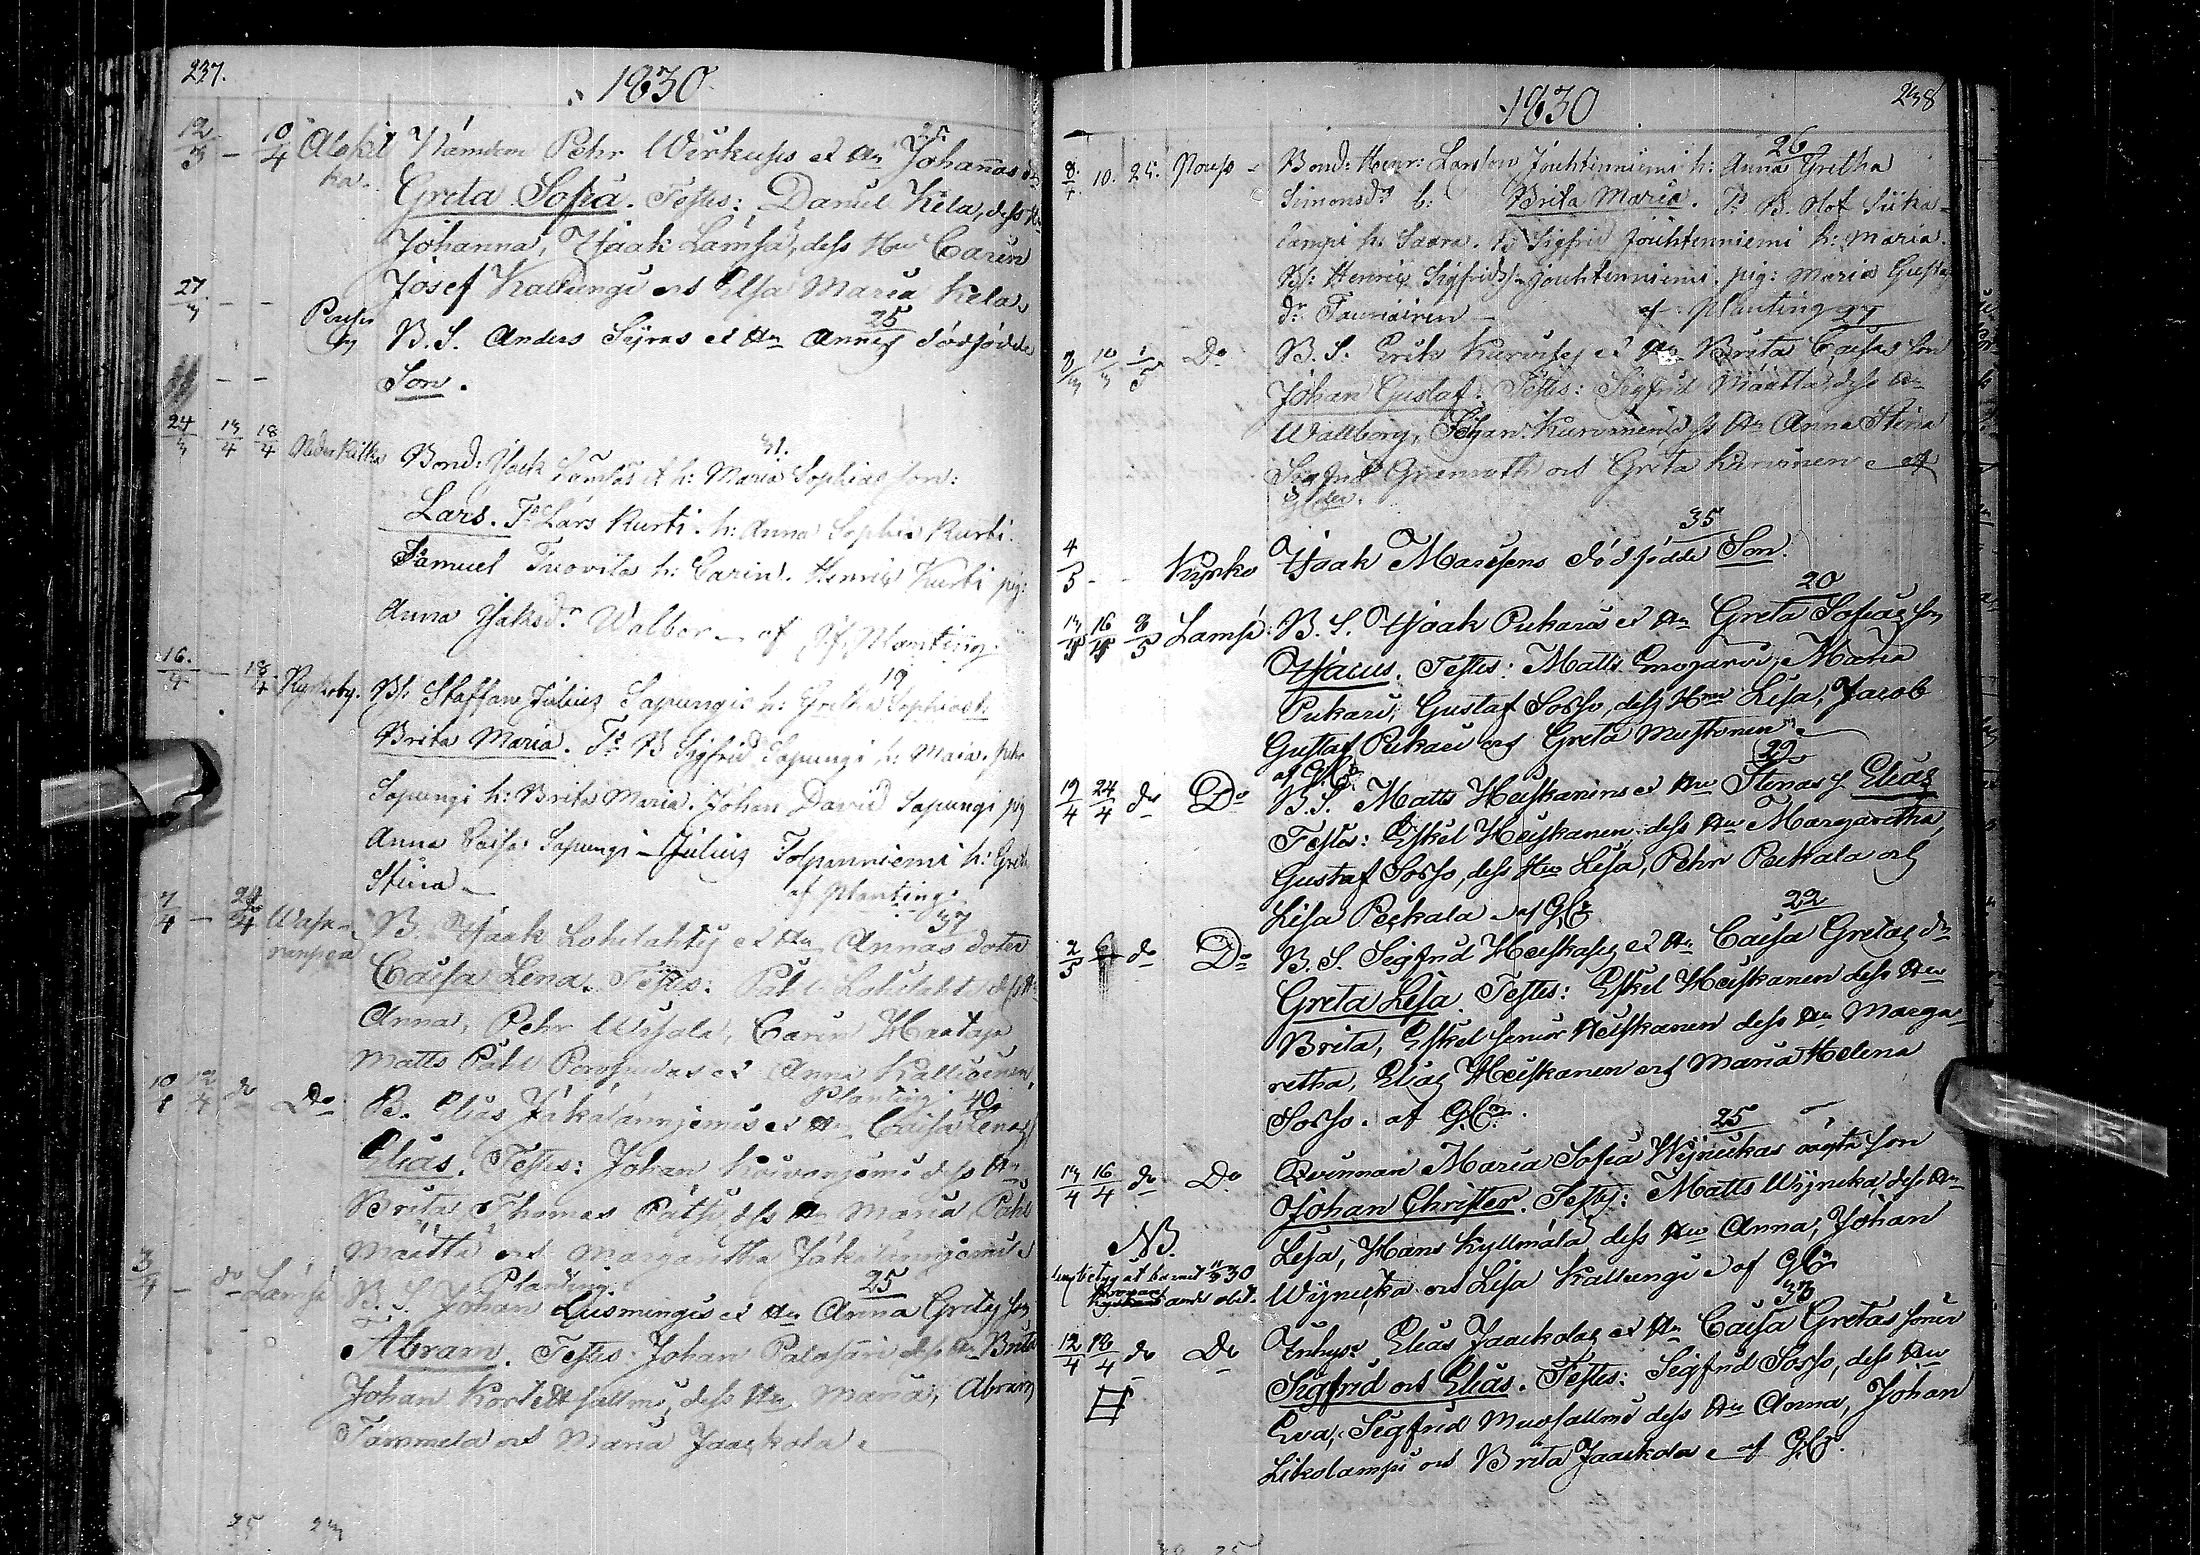 237.
1830.
12/3 - 10/4 Alakit
ka.
Nämdem Pehr Wirkuss et Hu Johannas dr
25
Greta Sofia. Testes: Daniel Kela, dess Hu
Johanna, Isaak Lämsä, dess Hu Carin
Josef Kallungi och Elsa Maria Kela
27/3 - - Posio
25
B. S. Anders Sirnös et Hu Annas dödfödde
Son.
24/3 13/4 18/4 Nederkitka
31.
Bond: Isak Lämsäs et h: Maria Sophias son:
Lars. Ts Lars Kurti. h: Anna Sophia Kurti.
Samuel Tuovila h: Carin. Henric Kurti pig:
Anna Isaksdr Walbor af Planting.
16/4 - 18/4 Kyrkoby.
19
Bd: Staffan Julius Sapungis h: Gretha Sophias b:
Brita Maria. Ts B Sigfrid Sapungi h: Maria. Pehr
Sapungi h: Brita Maria. Johan David Sapungi pig
Anna Caisa Sapungi - Julius Tolpanniemi h: Greta
Stina
af Planting.
7/4 - 24/4 Wasa-
ranpera
37
B. Isaak Lohilahtis et Hu Annas doter
Caisa Lena. Testes: Påhl Lohilahti dess Hu
Anna, Pehr Wisala, Carin Haataja
Matts Påhl et Anna Kallioinen
Planting.
10/4 12/4 do Do
40
B. Elias Jäkäläniemis et Hu Caisa Lenas
Elias. Testes: Johan Koivaniemi dess Hu
Brita, Thomas Pätsi, dess Hu Maria, Påhl
Määttä och Margaretha Jäkäläniemi
Planting.
3/4 - do Lämsä
25
B. S. Johan Lusmingis et Hu Anna Gretas son
Abram. Testes: Johan Palosari dess Hu Brita
Johan Kortesalmi, dess Hu Maria, Abram
Tammela och Maria Jaackola
1830
238
8/4 10. 25. Posio
26
Bond: Henr: Larsson Jouhtenniemi h: Anna Gretha
Simonsdr b: Brita Maria. Ts B. Olof Siika-
langi h: Saara. B Sigfrid Jouhtenniemi h: Maria.
Bs: Henric Sigfridss: Jouhtenniemi. pig: Maria Gustafs
dr Tauriainen
af Planting
8/3 10/3 1/5 Do
27
B. S. Erik Kurvises et Hu Brita Caisas son
Johan Gustaf. Testes: Sigfrid Määttä, dess Hu
Wallborg, Johan Kurvinen dess Hu Anna Stina
Sigfrid Granroth och Greta Kurvinen af
4/5 - - Kyrko
35
Isaak Manisens dödfödde Son.
20
Lämsä:
B. S. Isaak Pukaris et Hu Greta Sofias son
Isacus. Testes: Matts Maria
Pukari, Gustaf Sosso, dess Hu Lisa, Jacob
Gustaf Pukari och Greta Mustonen
af
19/4 24/4 do Do
22
B. S. Matts Heiskanens et Hu Stinas s Elias
Testes: Eskel Heiskanen, dess Hu Margaretha,
Gustaf Sosso, dess Hu Lisa, Pehr Packala och
Lisa Packala af
2/5 do Do
22
B. S. Sigfrid Heiskases et Hu Caisa Gretas dr
Greta Lisa. Testes: Eskel Heiskanen dess Hu
Brita, Eskel senior Heiskanen dess Hu Marga-
retha, Elias Heiskanen och Maria Helena
Sosso. af
13/4 16/4 do Do
25
Qvinnan Maria Sofia Wijnickas oägta son
Johan Christer. Testes: Matts Wijnicka, dess Hu
Lisa, Hans Kyllmälä dess Hu Anna, Johan
Wijnicka och Lisa Kallungi af
NB.
betyg at barnet 30
12/4 18/4 do Do
33
Inhys: Elias Jaackolas et Hu Caisa Gretas söner
Sigfrid och Elias. Testes: Sigfrid Sosso, dess Hu
Eva, Sigfrid Muosallmi dess Hu Anna, Johan
Likolampi och Brita Jaackola af